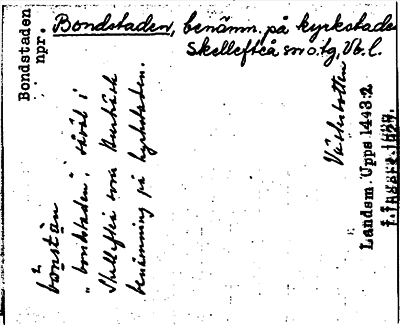 Bondstaden
npr.
Bondstaden, benämn. på kyrkstaden
Skellefteå sn o. tg, Vb. l.
bonstan
"bondstaden", såväl i
Skellefteå som
benämning på kyrkstaden.
Västerbotten
Landsm. Upps 1443:2